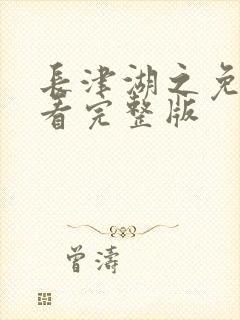 長津湖之免
看完整版
曾濤